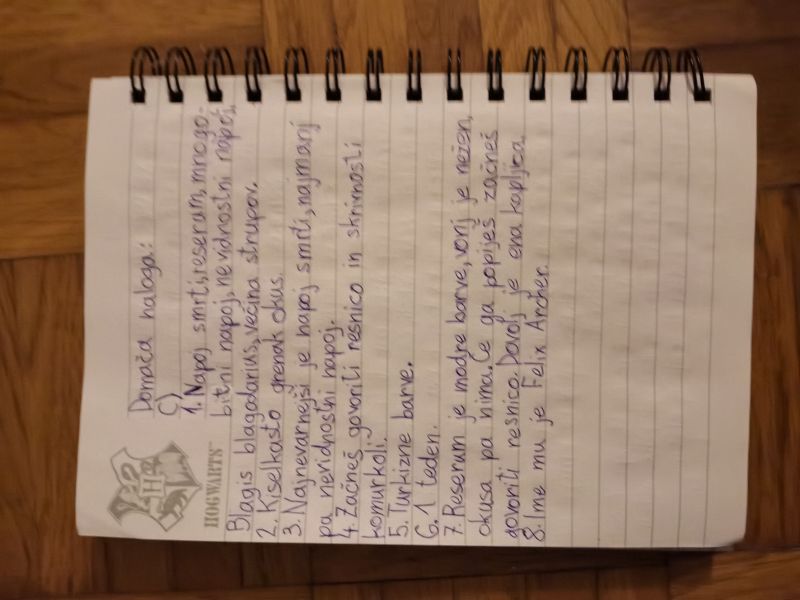 HOGWARTS
Domača naloga:
C)
1. Napoj smrti, reserum, mnogo-
bitni napoj, nevidnostni napoj,
Blagis blagodarius, večina strupov.
2. Kiselkasto grenak okus.
3. Najnevarnejši je napoj smrti, najmanj
pa nevidnostni napoj.
4. Začneš govoriti resnico in skrivnosti
komurkoli.
5. Turkizne barve.
6. 1 teden.
7. Reserum je modre barve, vonj je nežen,
okusa pa nima. Če ga popiješ začneš
govoriti resnico. Dovolj je ena kapljica.
8. Ime mu je Felix Archer.